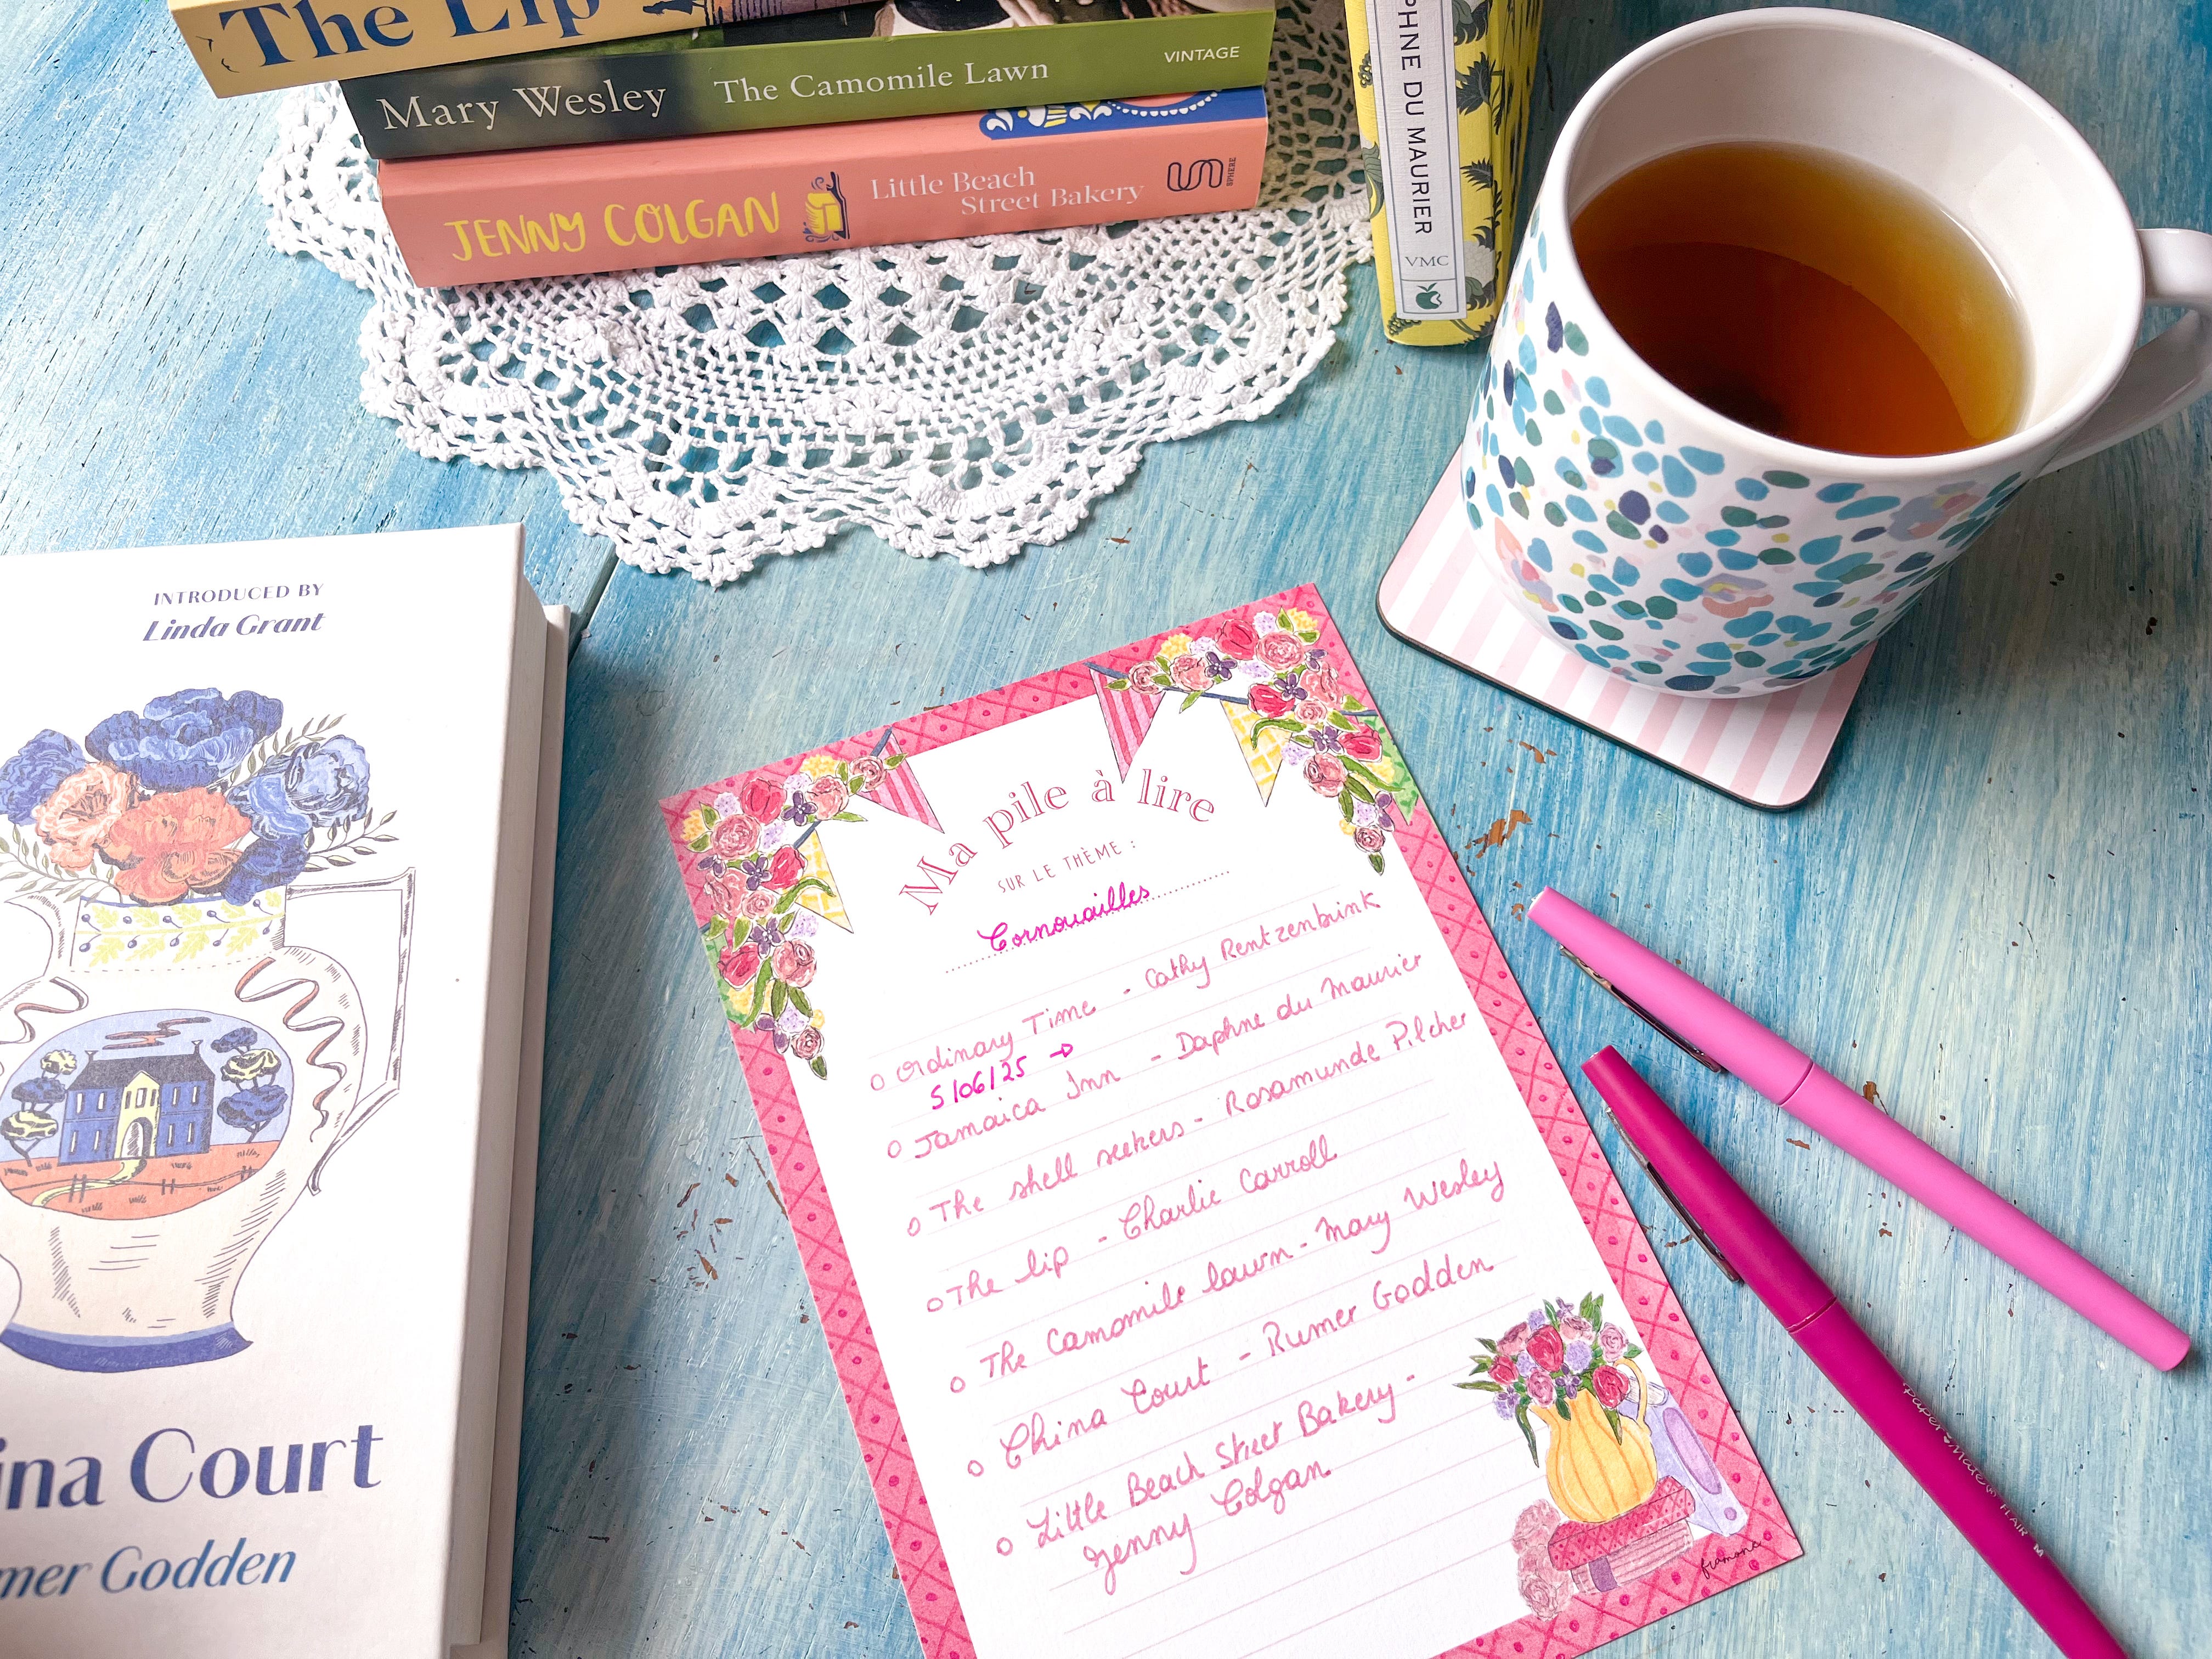 The Lip
Mary Wesley The Camomile Lawn VINTAGE
JENNY COLGAN Little Beach
Street Bakery SPHERE
PHNE DU MAURIER
VMC
INTRODUCED BY
Linda Grant
ina Court
mer Godden
Ma pile à lire
SUR LE THÈME :
Cornouailles
Ordinary Time - Cathy Rentzenbrink
5/06/25 →
Jamaica Inn - Daphne du Maurier
The shell seekers - Rosamunde Pilcher
The lip - Charlie Carroll
The Camomile lawn - Mary Wesley
China Court - Rumer Godden
Little Beach Street Bakery -
Jenny Colgan
framone
Paper:Mate® FLAIR M